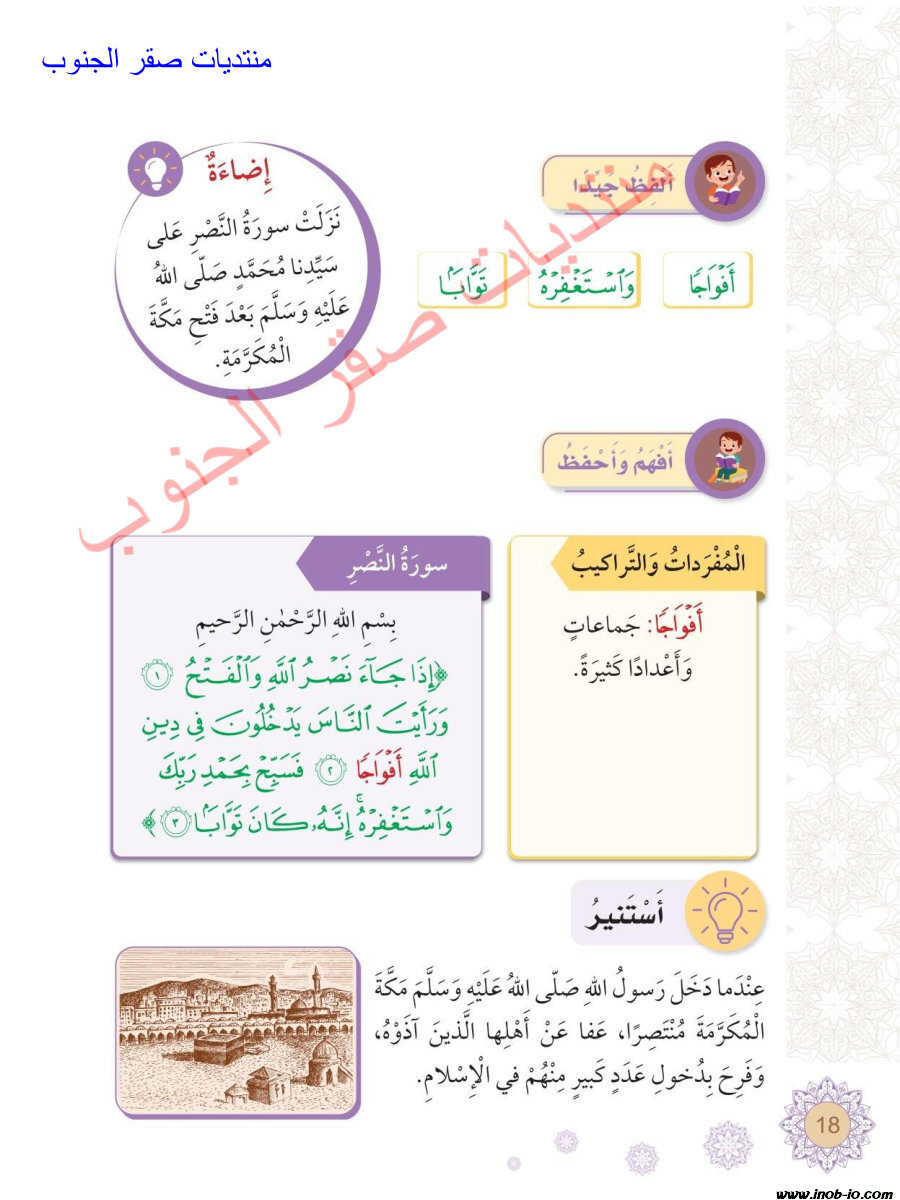 منتديات صقر الجنوب
أَلْفِظُ جيِّدًا
أَفۡوَاجٗا
وَٱسۡتَغۡفِرۡهُ
تَوَّابَۢا
إِضاءَةٌ
نَزَلَتْ سورَةُ النَّصْرِ عَلى
سَيِّدِنا مُحَمَّدٍ صَلّى اللهُ
عَلَيْهِ وَسَلَّمَ بَعْدَ فَتْحِ مَكَّةَ
الْمُكَرَّمَةِ.
منتديات صقر الجنوب
أَفْهَمُ وَأَحْفَظُ
الْمُفْرَداتُ وَالتَّراكيبُ
أَفۡوَاجٗا: جَماعاتٍ
وَأَعْدادًا كَثيرَةً.
سورَةُ النَّصْرِ
بِسْمِ اللهِ الرَّحْمٰنِ الرَّحيمِ
﴿إِذَا جَآءَ نَصۡرُ ٱللَّهِ وَٱلۡفَتۡحُ ١
وَرَأَيۡتَ ٱلنَّاسَ يَدۡخُلُونَ فِي دِينِ
ٱللَّهِ أَفۡوَاجٗا ٢ فَسَبِّحۡ بِحَمۡدِ رَبِّكَ
وَٱسۡتَغۡفِرۡهُۚ إِنَّهُۥ كَانَ تَوَّابَۢا ٣﴾
أَسْتَنيرُ
عِنْدَما دَخَلَ رَسولُ اللهِ صَلّى اللهُ عَلَيْهِ وَسَلَّمَ مَكَّةَ
الْمُكَرَّمَةَ مُنْتَصِرًا، عَفا عَنْ أَهْلِها الَّذينَ آذَوْهُ،
وَفَرِحَ بِدُخولِ عَدَدٍ كَبيرٍ مِنْهُمْ في الْإِسْلامِ.
18
www.jnob-jo.com